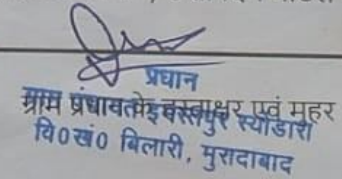 प्रधान
ग्राम प्रधान के हस्ताक्षर एवं मुहर
ग्राम पंचायत स्योडारा
वि०खं० बिलारी, मुरादाबाद